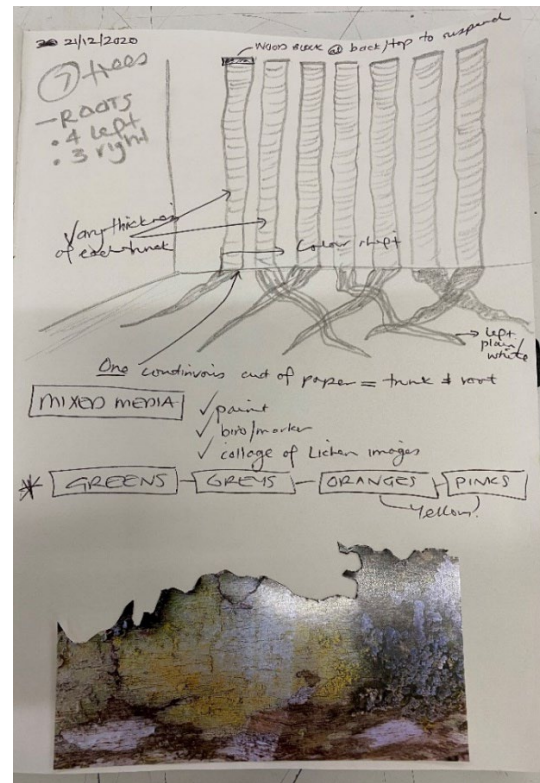 21/12/2020
WOOD BLOCK @ back/top to suspend
7 trees
- ROOTS
• 4 left
• 3 right
Vary thickness
of each trunk
Colour shift
left
plain/
white
One continuous cut of paper = trunk & root
MIXED MEDIA
✓ paint
✓ biro/marker
✓ collage of Lichen images
* GREENS - GREYS - ORANGES - PINKS
Yellow?